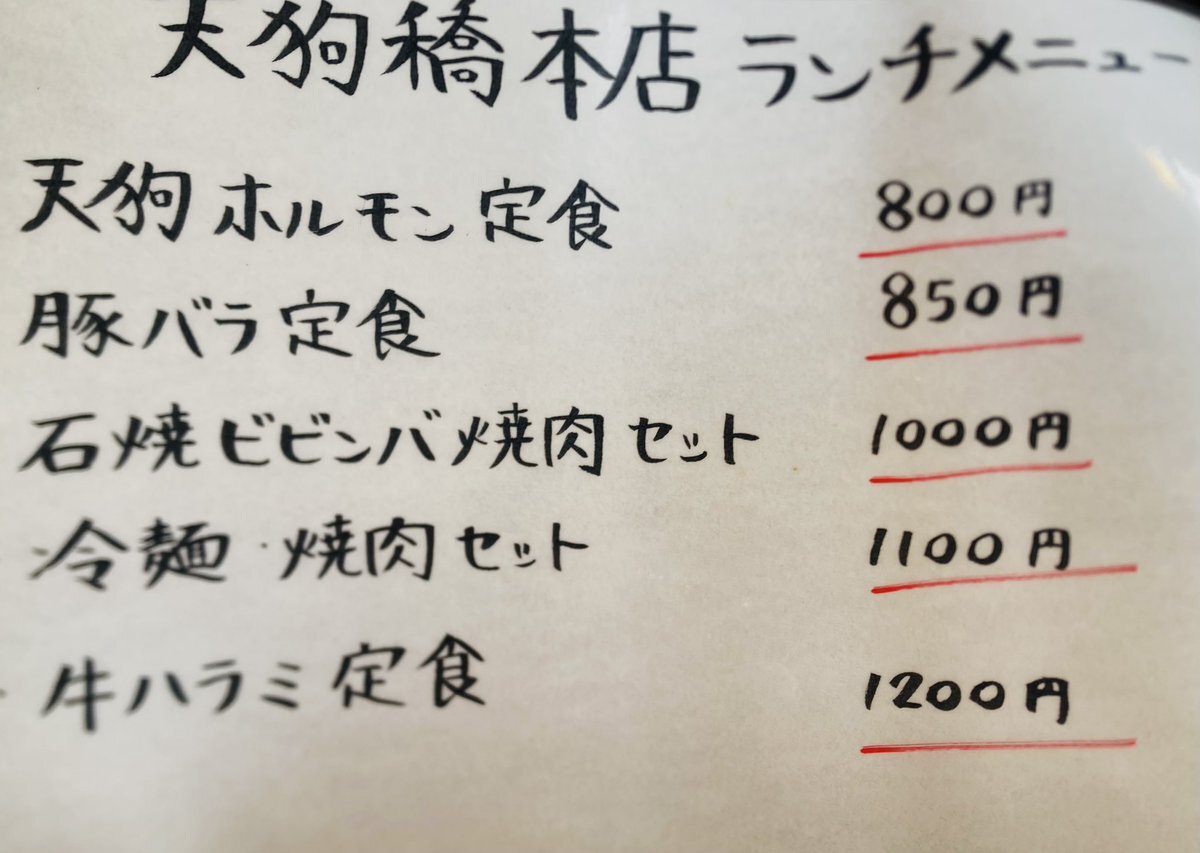 天狗橋本店 ランチメニュー
天狗ホルモン定食 800円
豚バラ定食 850円
石焼ビビンバ焼肉セット 1000円
冷麺・焼肉セット 1100円
牛ハラミ定食 1200円